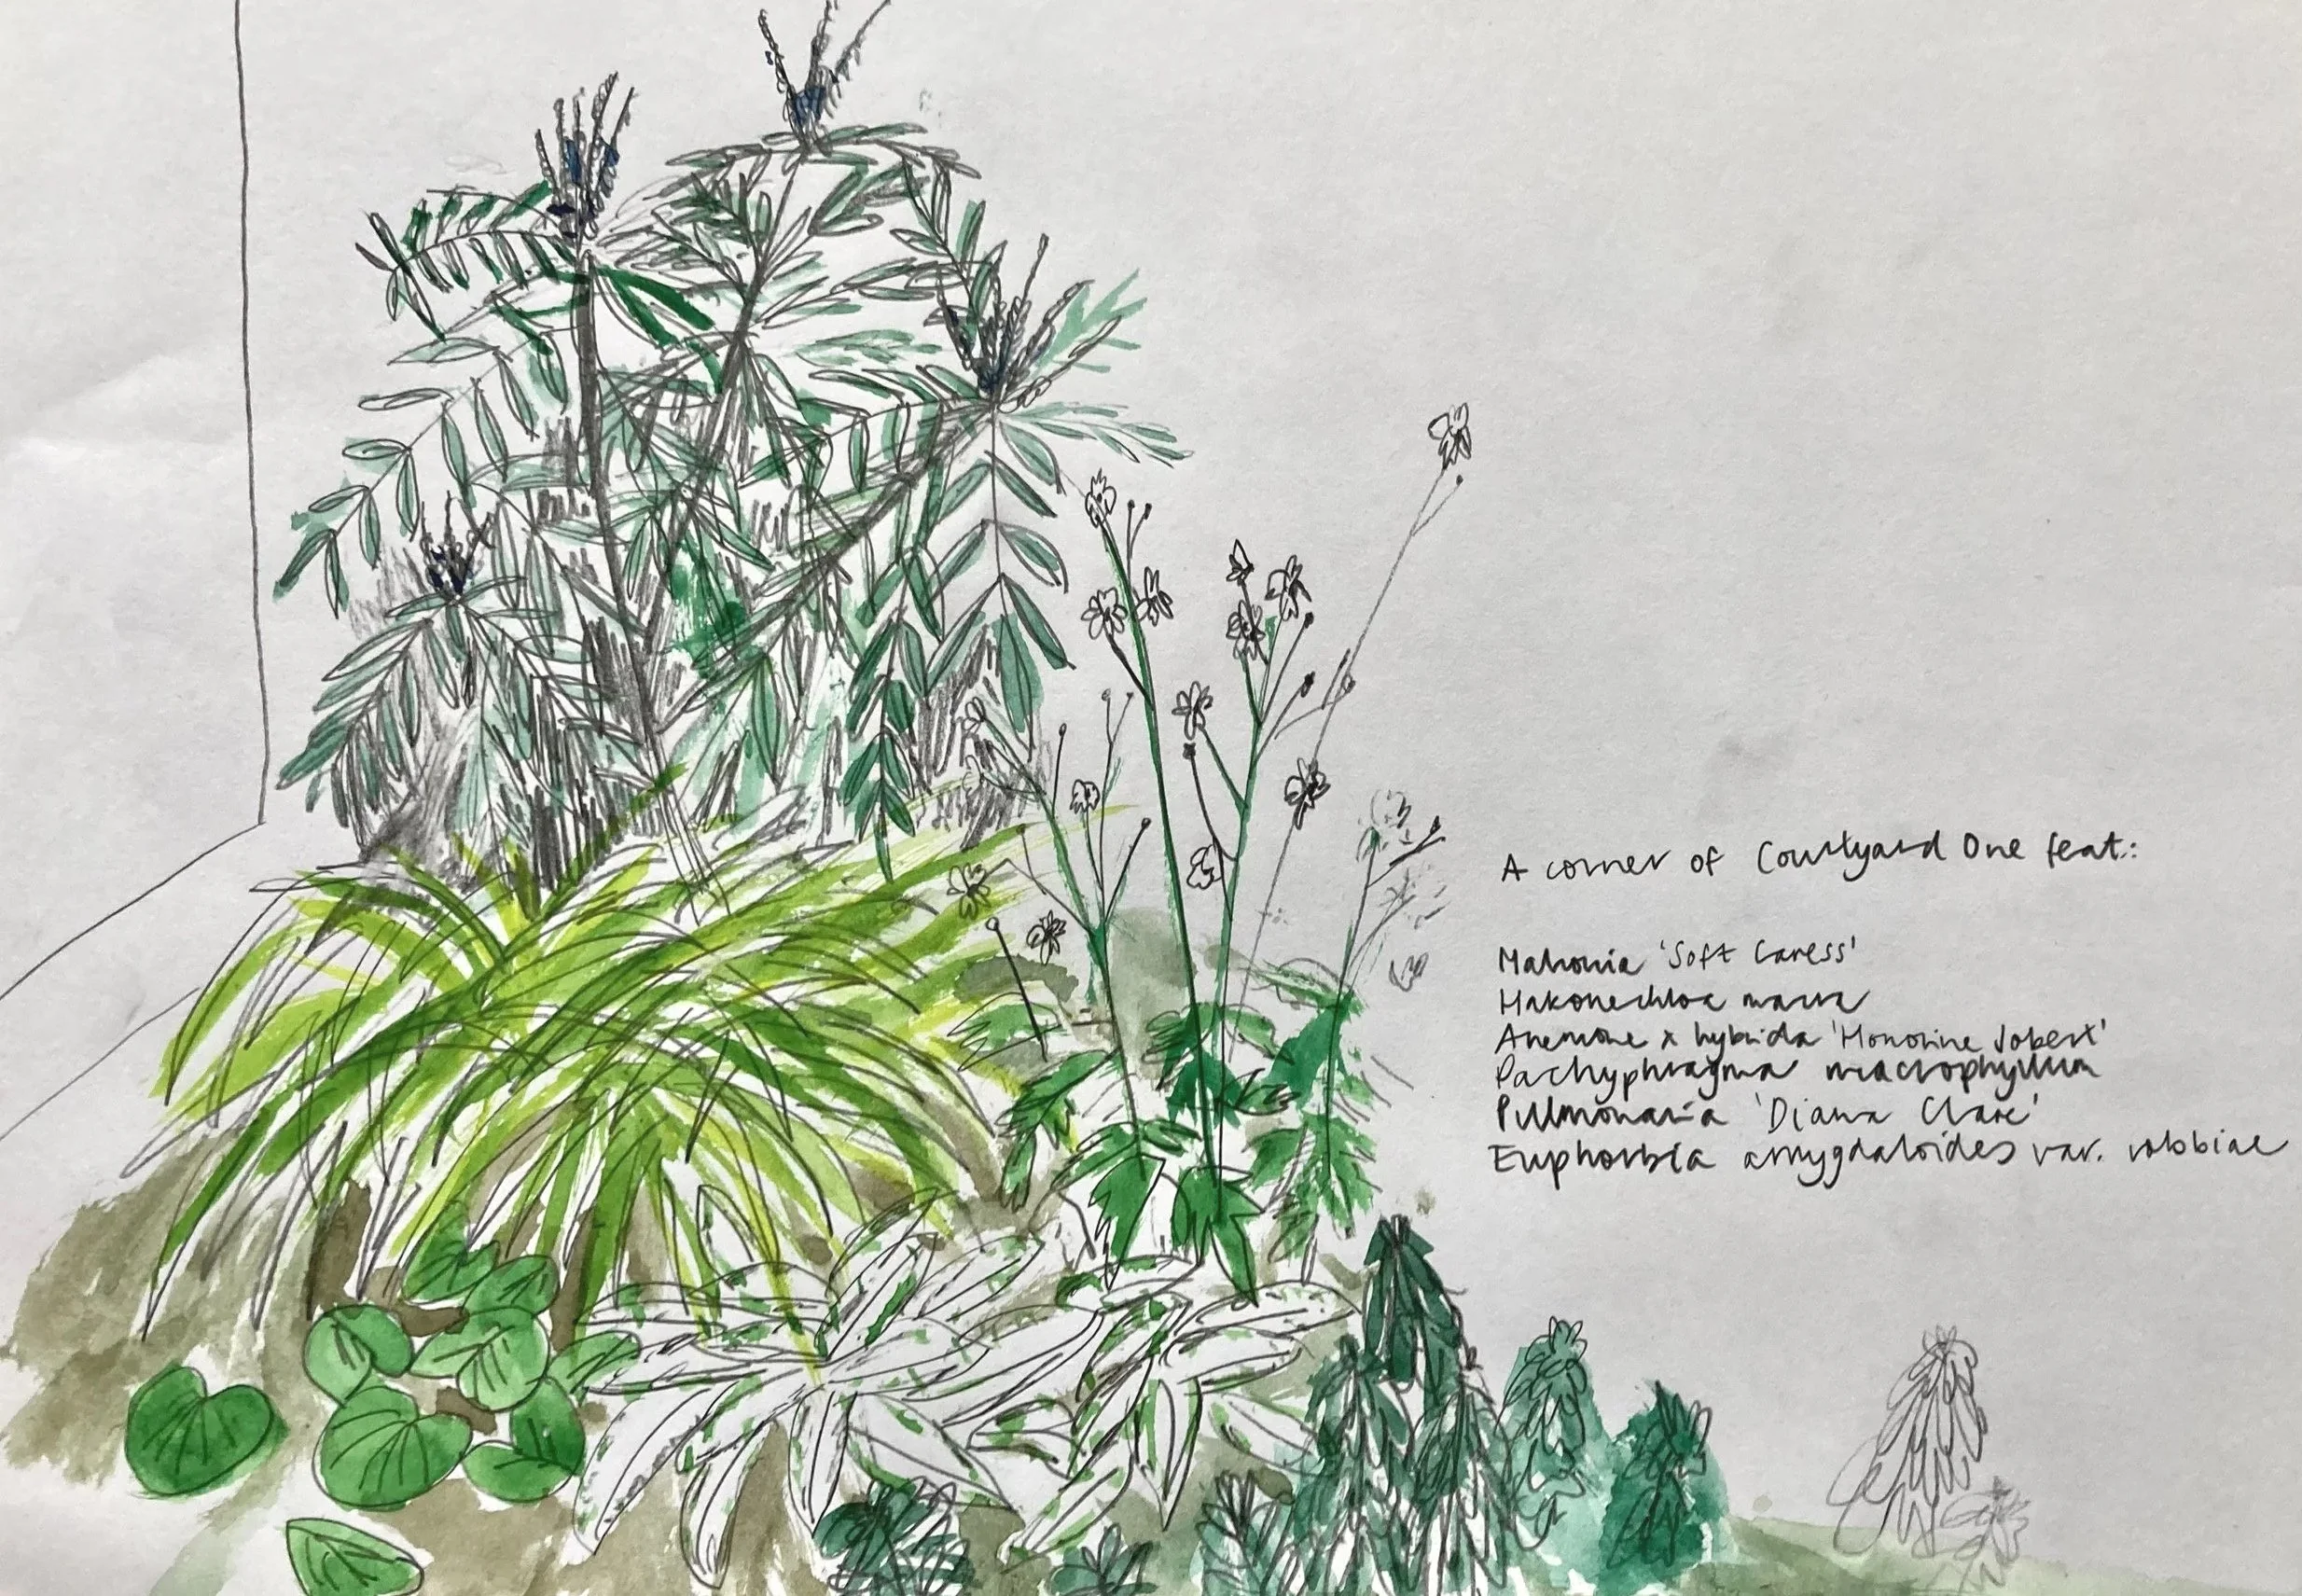 A corner of Courtyard One feat.:
Mahonia 'Soft Caress'
Hakonechloa macra
Anemone x hybrida 'Honorine Jobert'
Pachyphragma macrophyllum
Pulmonaria 'Diana Clare'
Euphorbia amygdaloides var. robbiae